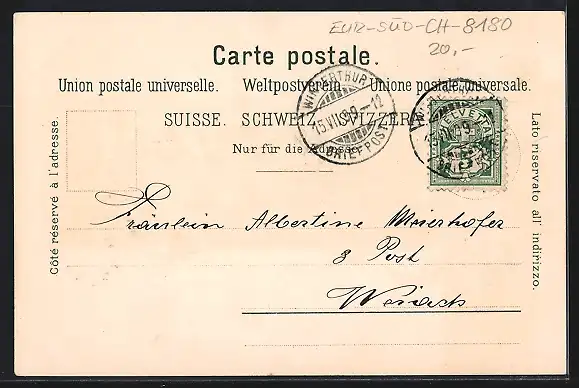 EUR-SÜD-CH-8180
20,-
Carte postale.
Union postale universelle. Weltpostverein. Unione postale universale.
SUISSE. SCHWEIZ. SVIZZERA.
Nur für die Adresse.
Côté réservé à l'adresse.
Lato riservato all' indirizzo.
WINTERTHUR
15.VII.99-12
BRIEFPOST
HELVETIA
Fräulein Albertine Meierhofer
z Post
Weiach